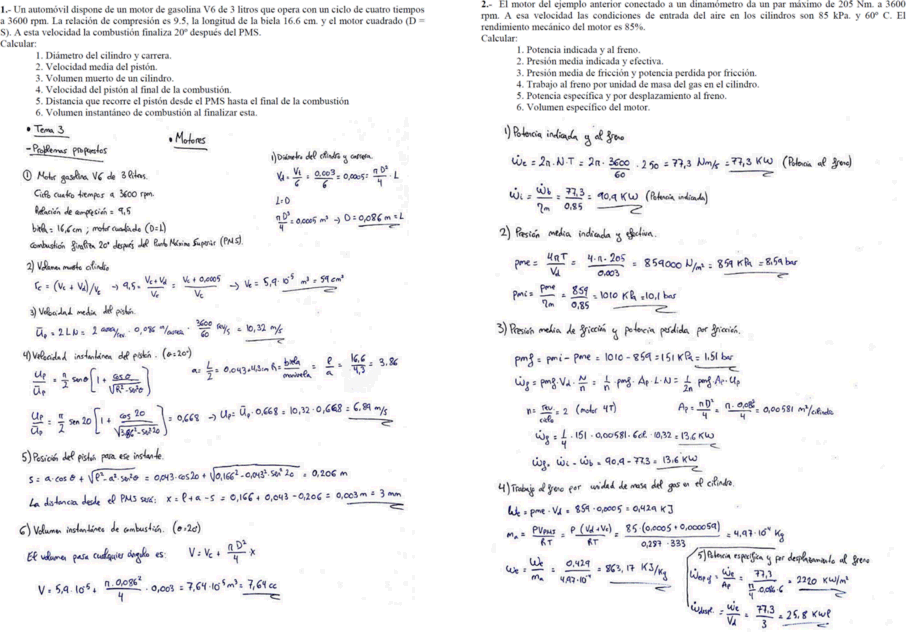 1.- Un automóvil dispone de un motor de gasolina V6 de 3 litros que opera con un ciclo de cuatro tiempos
a 3600 rpm. La relación de compresión es 9.5, la longitud de la biela 16.6 cm. y el motor cuadrado (D =
S). A esta velocidad la combustión finaliza 20º después del PMS.
Calcular:
1. Diámetro del cilindro y carrera.
2. Velocidad media del pistón.
3. Volumen muerto de un cilindro.
4. Velocidad del pistón al final de la combustión.
5. Distancia que recorre el pistón desde el PMS hasta el final de la combustión
6. Volumen instantáneo de combustión al finalizar esta.
• Tema 3
• Motores
- Problemas propuestos
① Motor gasolina V6 de 3 litros.
Ciclo cuatro tiempos a 3600 rpm.
Relación de compresión = 9,5
biela = 16,6 cm ; motor cuadrado (D=L)
combustión finaliza 20º después del Punto Máximo Superior (PMS).
1) Diámetro del cilindro y carrera.
Vd = Vt/6 = 0.003/6 = 0,0005 = πD²/4 · L
L=D
πD³/4 = 0,0005 m³ → D = 0,086 m = L
2) Volumen muerto cilindro
rc = (Vc + Vd)/Vc → 9,5 = (Vc + Vd)/Vc = (Vc + 0,0005)/Vc → Vc = 5,9·10⁻⁵ m³ = 59 cm³
3) Velocidad media del pistón.
Ūp = 2LN = 2 carrera/rev · 0,086 m/carrera · 3600/60 rev/s = 10,32 m/s
4) Velocidad instantánea del pistón. (θ=20º)
Up/Ūp = π/2 senθ [1 + cosθ/√(R²-sen²θ)]
a = L/2 = 0,043 = 4,3cm R = biela/manivela = ℓ/a = 16,6/4,3 = 3.86
Up/Ūp = π/2 sen 20 [1 + cos 20/√(3,86²-sen²20)] = 0,668 → Up = Ūp · 0,668 = 10,32 · 0,668 = 6.89 m/s
5) Posición del pistón para ese instante.
s = a·cosθ + √(ℓ²-a²·sen²θ) = 0,043·cos20 + √(0,166²-0,043²·sen²20) = 0,206 m
La distancia desde el PMS será: x = ℓ+a-s = 0,166 + 0,043 - 0,206 = 0,003m = 3 mm
6) Volumen instantáneo de combustión. (θ=20)
El volumen para cualquier ángulo es: V = Vc + πD²/4 · x
V = 5,9·10⁻⁵ + π·0,086²/4 · 0,003 = 7,64·10⁻⁵ m³ = 7,64 cc
2.- El motor del ejemplo anterior conectado a un dinamómetro da un par máximo de 205 Nm. a 3600
rpm. A esa velocidad las condiciones de entrada del aire en los cilindros son 85 kPa. y 60º C. El
rendimiento mecánico del motor es 85%.
Calcular:
1. Potencia indicada y al freno.
2. Presión media indicada y efectiva.
3. Presión media de fricción y potencia perdida por fricción.
4. Trabajo al freno por unidad de masa del gas en el cilindro.
5. Potencia específica y por desplazamiento al freno.
6. Volumen específico del motor.
1) Potencia indicada y al freno
Ẇe = 2π·N·T = 2π · 3600/60 · 250 = 77,3 Nm/s = 77,3 KW (Potencia al freno)
Ẇi = Ẇb/ηm = 77,3/0,85 = 90,9 KW (Potencia indicada)
2) Presión media indicada y efectiva.
pme = 4πT/Vd = 4·π·205/0.003 = 859000 N/m² = 859 KPa = 8,59 bar
pmi = pme/ηm = 859/0,85 = 1010 KPa = 10,1 bar
3) Presión media de fricción y potencia perdida por fricción.
pmf = pmi - pme = 1010 - 859 = 151 KPa = 1.51 bar
Ẇf = pmf·Vd·N/n = 1/n · pmf·Ap·L·N = 1/2n pmf·Ap·Up
n = rev/ciclo = 2 (motor 4T)
Ap = πD²/4 = π·0,086²/4 = 0,00581 m²/cilindro
Ẇf = 1/4 · 151 · 0,00581 · 6cil · 10,32 = 13,6 KW
Ẇf = Ẇi - Ẇb = 90,9 - 77.3 = 13.6 KW
4) Trabajo al freno por unidad de masa del gas en el cilindro.
We = pme · Vd = 859 · 0,0005 = 0,429 KJ
ma = PVPMI/RT = P(Vd+Vc)/RT = 85·(0.0005 + 0,000059)/0,287·333 = 4,97·10⁻⁴ Kg
we = We/ma = 0,429/4,97·10⁻⁴ = 863,17 KJ/Kg
5) Potencia específica y por desplazamiento al freno
Ẇesp f = Ẇe/Ap = 77,3/(π/4·0,086·6) = 2220 KW/m²
Ẇdespl. = Ẇe/Vd = 77.3/3 = 25.8 KW/ℓ